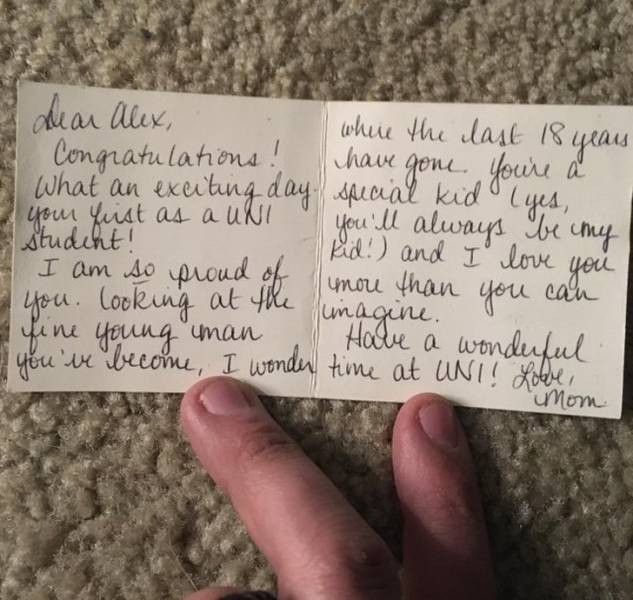 Dear Alex,
Congratulations!
What an exciting day.
your first as a UNI
student!
I am so proud of
you. Looking at the
fine young man
you've become, I wonder
where the last 18 years
have gone. You're a
special kid (yes,
you'll always be my
kid!) and I love you
more than you can
imagine.
Have a wonderful
time at UNI! Love,
Mom